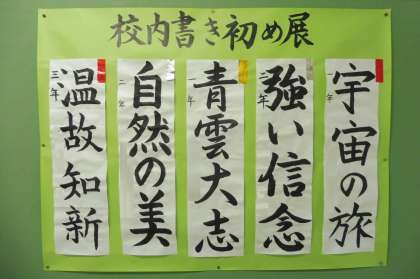 校内書き初め展
宇宙の旅
一年
強い信念
二年
青雲大志
一年
自然の美
二年
温故知新
三年